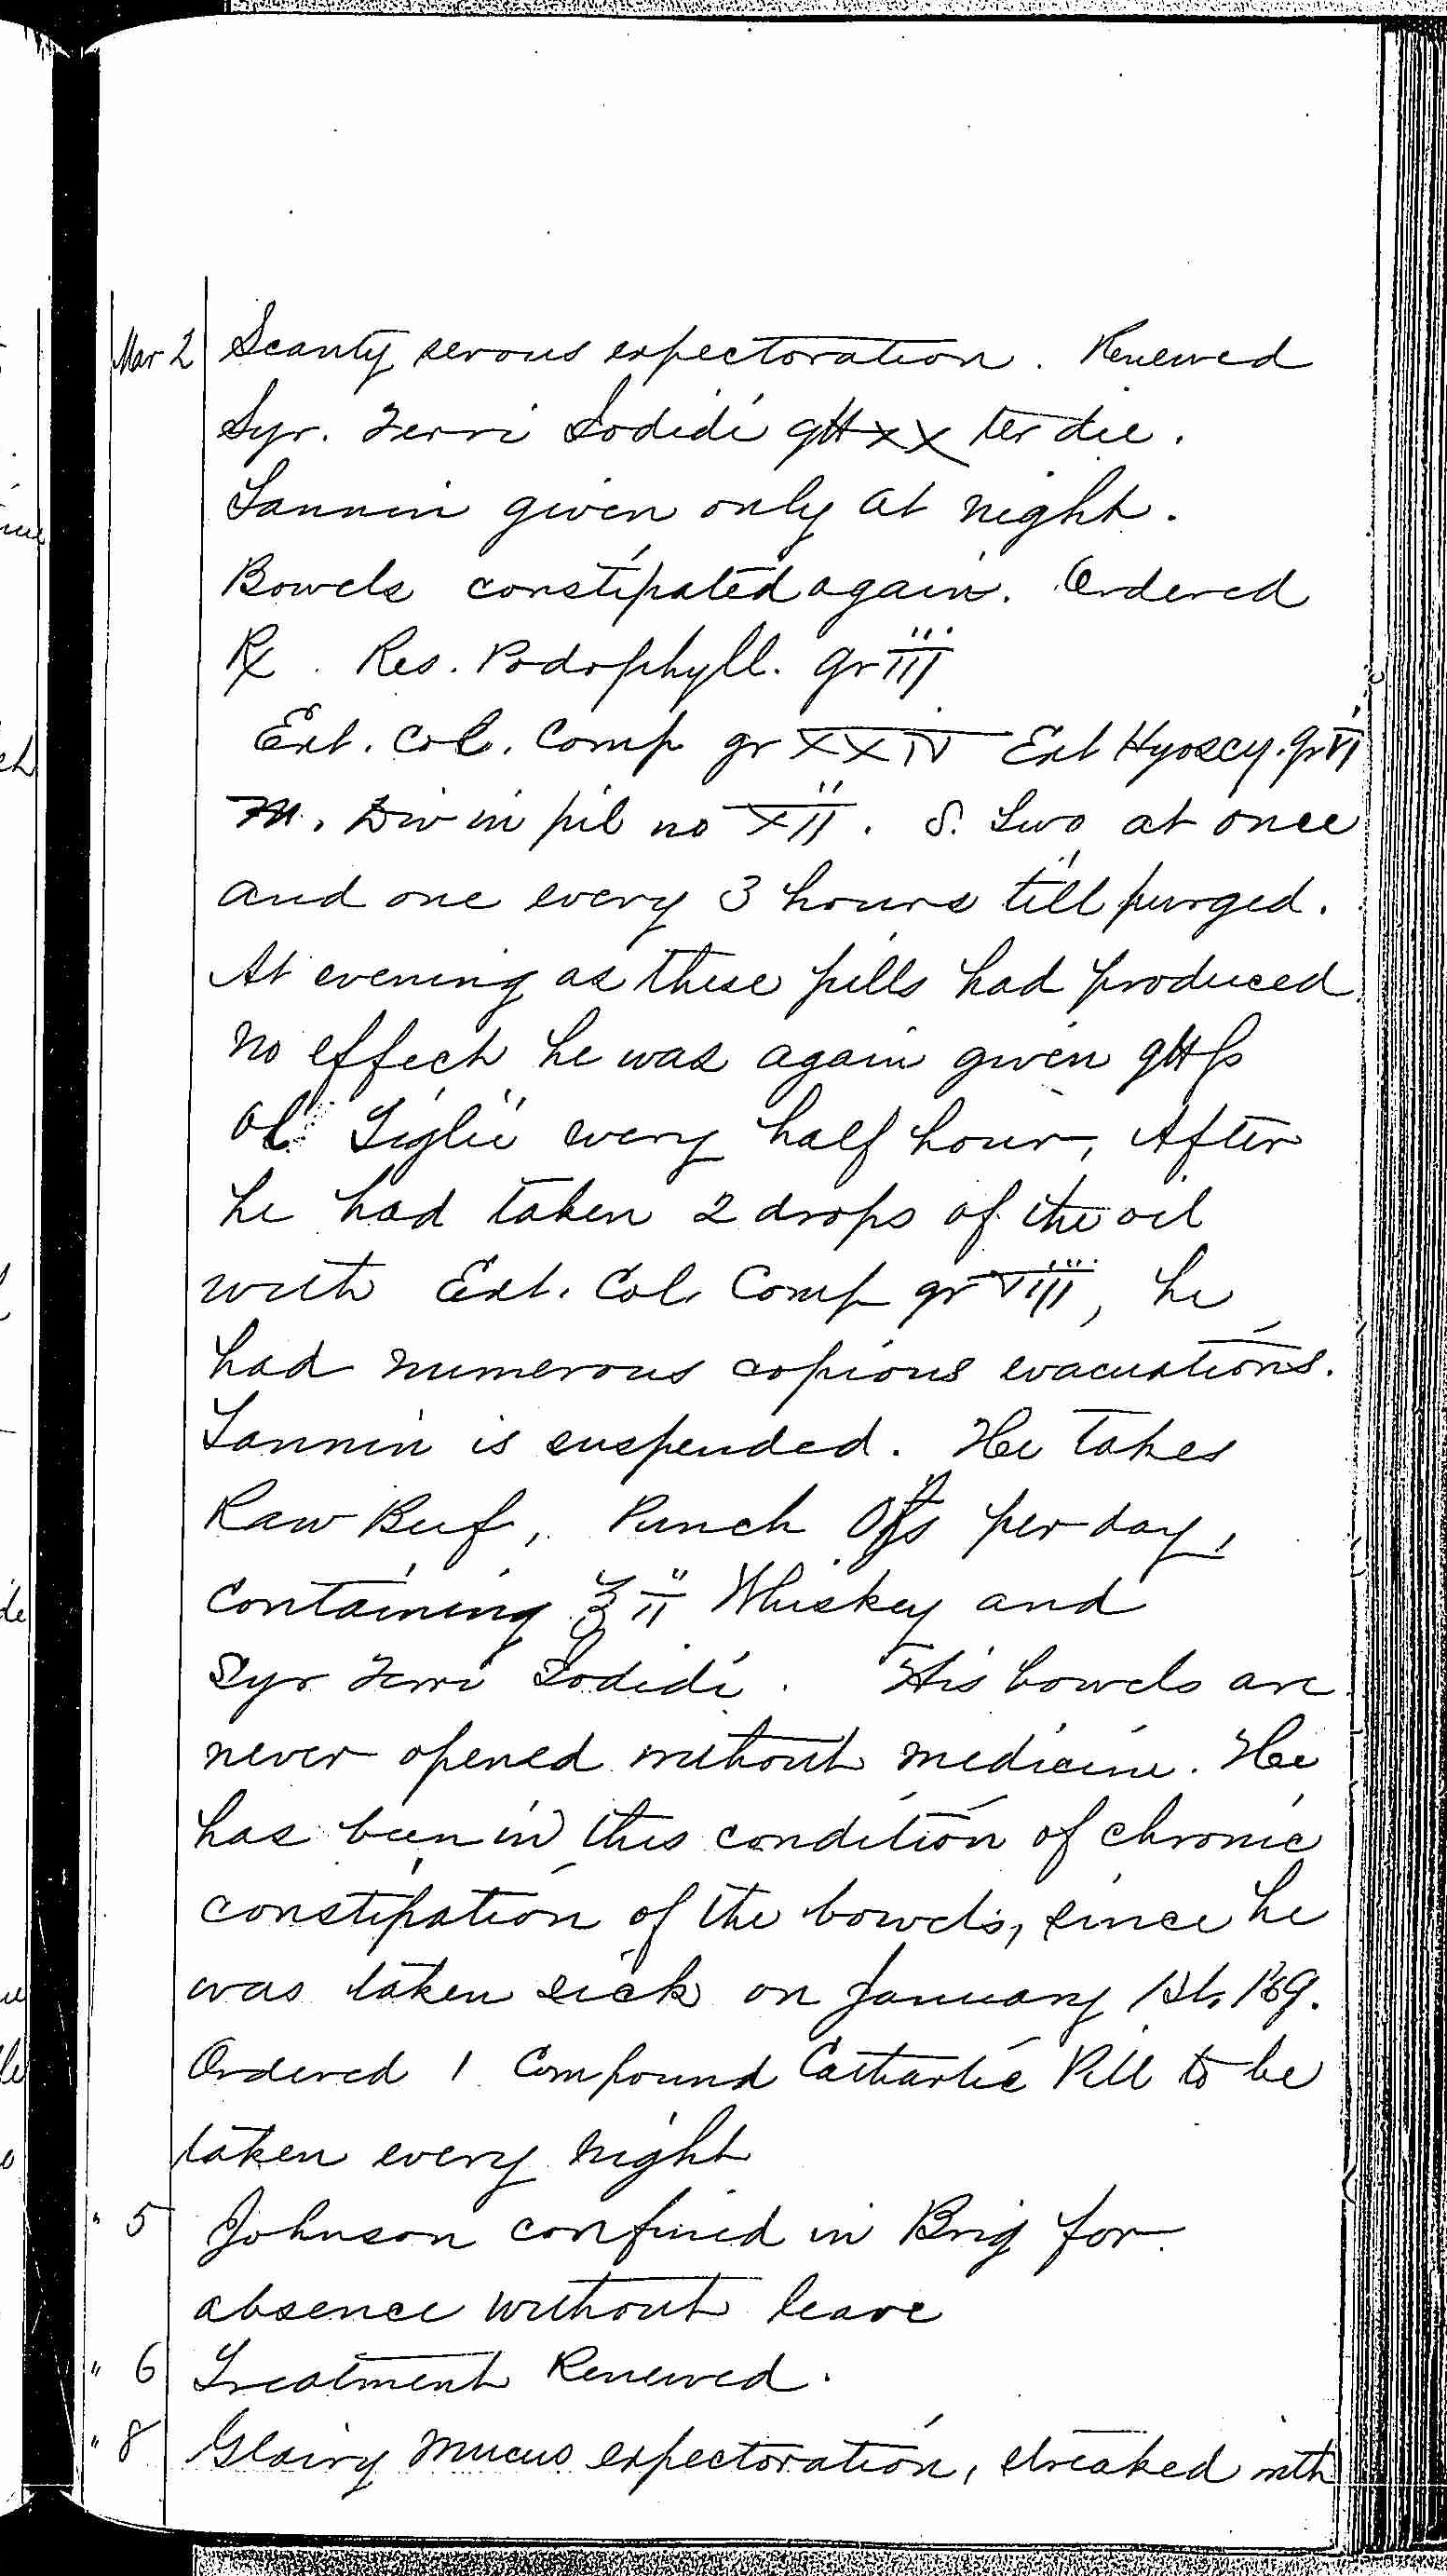 Mar 2 Scanty serous expectoration. Renewed
Syr. Ferri Iodidi gtt xx ter die.
Tannin given only at night.
Bowels constipated again. Ordered
℞. Res. Podophyll. gr III
Ext. Col. Comp gr XXIV Ext Hyoscy. gr VI
M. Div in pil no XII. S. Two at once
and one every 3 hours till purged.
At evening as these pills had produced
no effect he was again given gtt ſs
Ol Tiglii every half hour, After
he had taken 2 drops of the oil
with Ext. Col. Comp gr VIII, he
had numerous copious evacuations.
Tannin is suspended. He takes
Raw Beef, Punch Oſs per day,
containing ℥ II Whiskey and
Syr Ferri Iodidi. His bowels are
never opened without medicine. He
has been in this condition of chronic
constipation of the bowels, since he
was taken sick on January 1st,
Ordered 1 Compound Cathartic Pill to be
taken every night
" 5 Johnson confined in Brig for
absence without leave
" 6 Treatment Renewed.
" 8 Glairy mucus expectoration, streaked with